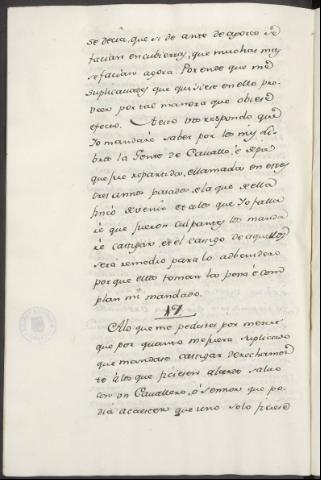 se decia, que si de ante de agora se
facian encubiertas, que muchas mas
se facian agora. Por ende que me
suplicavades que quisiese en ello pro-
veer por tal manera que obiese
efecto. A esto vos respondo que
Yo mandaré saber por los mis li-
bros la Gente de Cavallo, é á que
que fue repartida, é llamada en estos
tres annos pasados, é la que della
fincó de venir et á los que Yo falla-
ré que fueron culpantes los manda-
ré castigar, et el castigo de aquellos
será remedio para lo advenidero
porque ellos tomen las pen
plan mi mandado.
17
A lo que me pedistes por merced
que por quanto me fuera suplicado
que mandase castigar derechamen-
te á los que ficieron alarde salvo
con un Cavallero, ó Sennor que po-
dia acaescer que uno solo ficiese